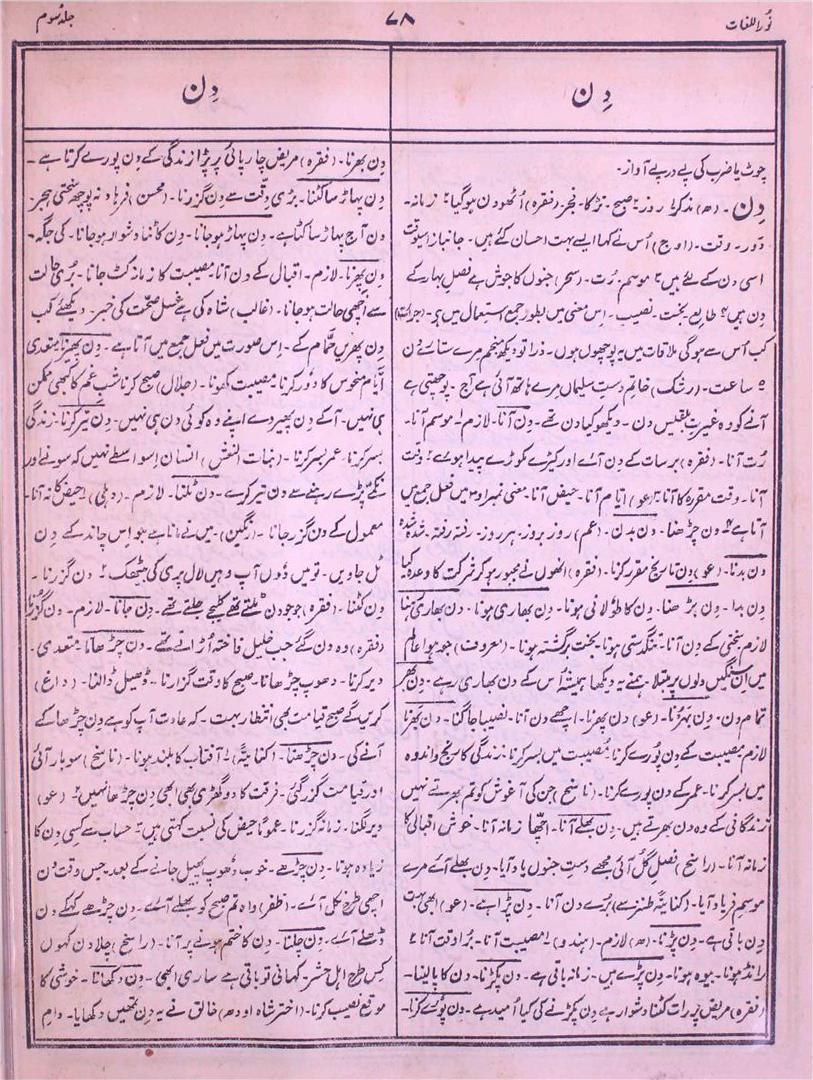 نُوراللغات
۷۸
جلد سُوم
دِن
دِن
چوٹ یا ضرب کی پے درپے آواز۔
دِن ۔ (ھ) مذکر۱ روز۲ صبح۔ تڑکا۔ فجر۔ (فقرہ) اُٹھو دن ہوگیا۳ زمانہ۔
دَور۔ وقت۔ (اوج) اُس نے کہا ایسے بہت احسان کئے ہیں۔ جانباز اسیوقت
اسی دن کے لئے ہیں۴ موسم۔ رُت۔ (سحر) جنوں کا جوش ہے فصلِ بہار کے
دِن ہیں۵ طالع۔ بخت۔ نصیب۔ اِس معنی میں بطور جمع استعمال میں ہی۔ (جرات)
کب اُس سے ہوگی ملاقات میں یہ پوچھوں ہوں۔ ذرا تو دیکھ منجم مرے ستارے دِن
۶ ساعت۔ (رشک) خاتم دستِ سلیماں مرے ہاتھ آئی ہے آج۔ پوچھتی ہے
آنے کو وہ غیرتِ بلقیس دن۔ دیکھو کیا دن تھے۔ دِن آنا۔ لازم۱ موسم آنا۔
رُت آنا۔ (فقرہ) برسات کے دِن آئے اور کیڑے کوڑے پیدا ہوئے۲ وقت
آنا۔ وقت مقررہ کا آنا۳ (عو) ایّام آنا۔ حیض آنا۔ معنی نمبر ۱و۳ میں فعل جمع میں
آتا ہے۔ دِن چڑھنا۔ دن بدن۔ (عم) روز بروز۔ ہر روز۔ رفتہ رفتہ۔ شدہ شدہ
دن بدنا۔ (عو) دِن تاریخ مقرر کرنا۔ (فقرہ) اُنھوں نے مجبور ہو کر شرکت کا وعدہ کیا
دِن بدا۔ دِن بڑھنا۔ دِن کا طُولانی ہونا۔ دِن بھاری ہونا۔ دِن بھاری رہنا
لازم سختی کے دِن آنا۔ تنگدستی ہونا۔ بخت برگشتہ ہونا۔ (معروف) جو ہوا عالم
میں ان سنگیں دلوں پر مبتلا۔ ہمنے یہ دیکھا ہمیشہ اُس کے دِن بھاری رہے۔ دِن بھر
تمام دن۔ دِن بہُرنا۔ (عو) دِن پھرنا۔ اچھے دن آنا۔ نصیبا جاگنا۔ دن بھرنا
لازم مصیبت کے دِن پُورے کرنا۔ مُصیبت میں بسر کرنا۔ زندگی کا رنج و اندوہ
میں بسر کرنا۔ عمر کے دِن پورے کرنا۔ (ناسخ) جن کی آغوش کو تم بھرتے نہیں
زندگانی کے وہ دن بھرتے ہیں۔ دن بھلے آنا۔ اچھّا زمانہ آنا۔ خوش اقبالی کا
زمانہ آنا۔ (راسخ) فصلِ گُل آئی مجھے دستِ جنوں یاد آیا۔ دن بھلے آئے مرے
موسمِ فریاد آیا۔ (کنایۃً طنز سے) بُرے دن آنا۔ دِن پڑا ہے۔ (عو) ابھی بہت
دِن باقی ہے۔ دِن پڑنا۔ (ھ) لازم۔ (ہندو)۱ مصیبت آنا۔ بُرا وقت آنا۲
رانڈ ہونا۔ بیوہ ہونا۔ دِن پڑے ہیں۔ زمانہ باقی ہے۔ دِن پکڑنا۔ دِن کا پالینا۔
(فقرہ) مریض پر رات کٹنا دشوار ہے دِن پکڑنے کی کیا اُمید ہے۔ دِن پُورے کرنا۔
دِن بھرنا۔ (فقرہ) مریض چارپائی پر پڑا زندگی کے دِن پورے کرتا ہے۔
دِن پہاڑ سا کٹنا۔ بڑی دِقّت سے دِن گزرنا۔ (محسن) فرہاد نہ پوچھ سختی ہجر۔
دن آج پہاڑ سا کٹا ہے۔ دِن پہاڑ ہوجانا۔ دِن کاٹنا دشوار ہوجانا۔ کی جگہ۔
دِن پھرنا۔ لازم۔ اقبال کے دِن آنا۔ مصیبت کا زمانہ کٹ جانا۔ بُری حالت
سے اچھی حالت ہوجانا۔ (غالب) شاہ کی ہے غسلِ صحّت کی خبر۔ دیکھئے کب
دِن پھریں حمّام کے۔ اِس صورت میں فعل جمع میں آتا ہے۔ دِن پھیرنا متعدی
ایّام منحوس کا دُور کرنا۔ مصیبت کھونا۔ (جلال) صبح کرنا شبِ غم کا کبھی ممکن
ہی نہیں۔ آکے دِن پھیر دے اپنے وہ کوئی دن ہی نہیں۔ دِن تیر کرنا۔ زندگی
بسر کرنا۔ عمر بسر کرنا۔ (بنات النعش) انسان اِسواسطے نہیں کہ سونے اور
نکمّے پڑے رہنے سے دن تیر کرے۔ دن ٹلنا۔ لازم۔ (دہلی) ۱حیض کا نہ آنا۔
معمول کے دن گزر جانا۔ (رنگین) میں نے مانا ہے جو اِس چاند کے دِن
ٹل جاویں۔ تو میں دُوں آپ وہیں لال پری کی بیٹھک۲ دِن گزرنا۔
دِن کٹنا۔ (فقرہ) جو جو دن ٹلتے تھے کلیجے چلتے تھے۔ دِن جانا۔ لازم۔ دِن گزرنا
(فقرہ) وہ دن گئے جب خلیل فاختہ اُڑاتے تھے۔ دن چڑھانا۔ متعدی۔
دیر کرنا۔ دھوپ چڑھانا۔ صبح کا وقت گزارنا۔ ڈھیل ڈالنا۔ (داغ)
کریں گے صبح قیامت بھی انتظار بہت۔ کہ عادت آپ کو ہے دِن چڑھا کے
آنے کی۔ دِن چڑھنا۔ (کنایۃً)۱ آفتاب کا بلند ہونا۔ (ناسخ) سو بار آئی
اور قیامت گزر گئی۔ فرقت کا دو گھڑی بھی ابھی دِن چڑھا نہیں۲ (عو)
دیر لگنا۔ زمانہ گزرنا۔ عموماً حیض کی نسبت کہتی ہیں۳ حساب سے کسی دِن کا
زیادہ ہونا۔ دِن چڑھے۔ خوب دھوپ پھیل جانے کے بعد۔ جس وقت دن
اچھی طرح نکل آئے۔ (ظفر) واہ تم صبح کو بھلے آئے۔ دِن چڑھے کہکے دن
ڈھلے آئے۔ دِن چلنا۔ دِن کا ختم ہونے پر آنا۔ (راسخ) چلا دن کہوں
کِس طرح اہلِ حشر۔ کہانی تو باقی ہے ساری ابھی۔ دِن دکھانا۔ خوشی کا
موقع نصیب کرنا۔ (اختر شاہ اودھ) خالق نے یہ دِن تمھیں دکھایا۔ دامِ